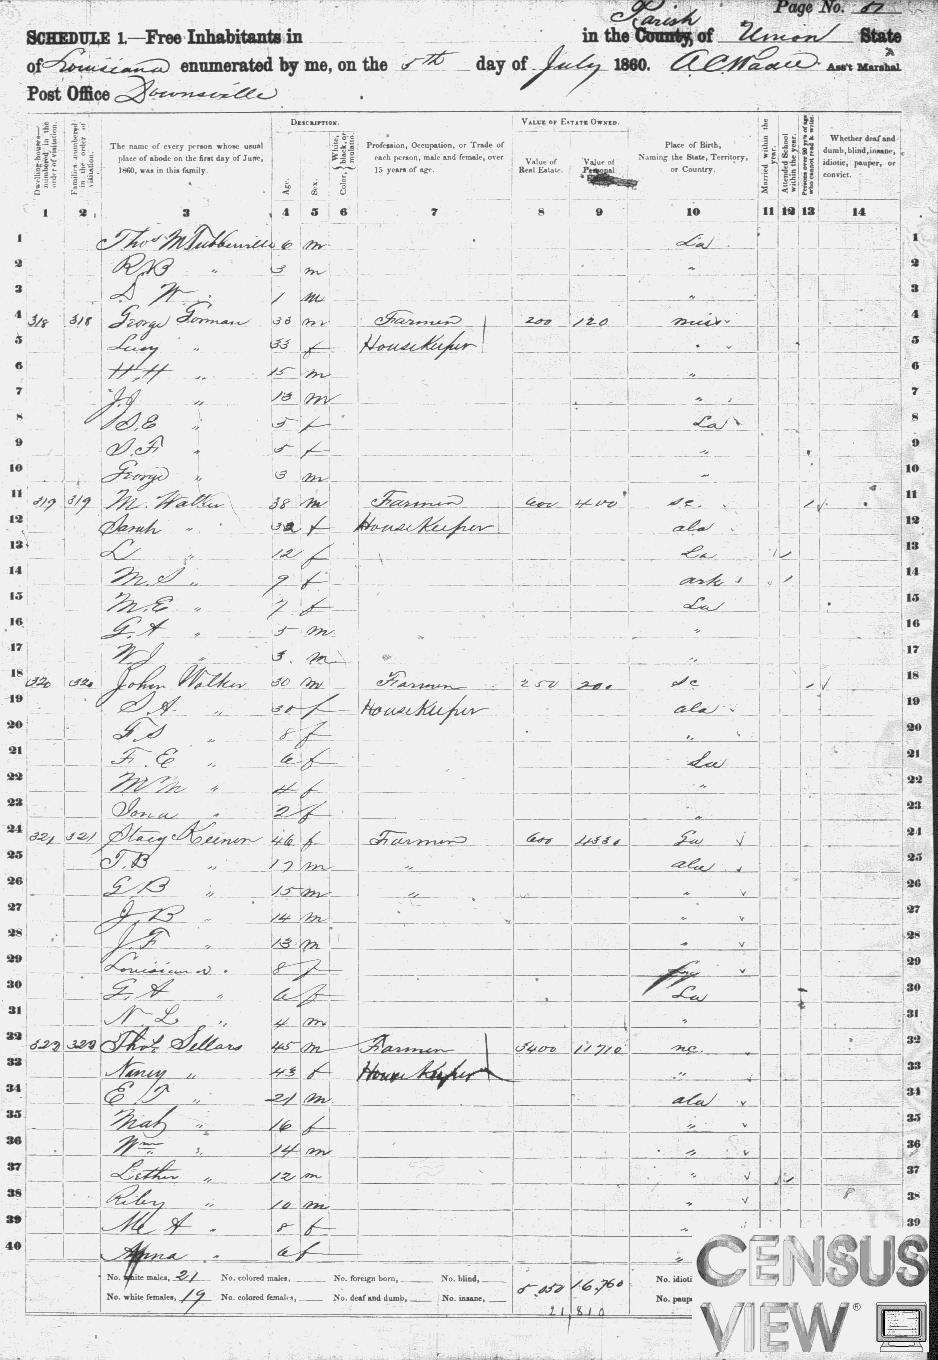 Page No. 51
SCHEDULE 1.—Free Inhabitants in in the County, Parish of Union State
of Louisiana enumerated by me, on the 5th day of July 1860. Ass't Marshal
Post Office Downsville
DESCRIPTION. VALUE OF ESTATE OWNED.
Dwelling-houses—numbered in the order of visitation. Families numbered in the order of visitation. The name of every person whose usual place of abode on the first day of June, 1860, was in this family. Age. Sex. Color, {White, black, or mulatto. Profession, Occupation, or Trade of each person, male and female, over 15 years of age. Value of Real Estate. Value of Personal Place of Birth, Naming the State, Territory, or Country. Married within the year. Attended School within the year. Persons over 20 y'rs of age who cannot read & write. Whether deaf and dumb, blind, insane, idiotic, pauper, or convict.
1 2 3 4 5 6 7 8 9 10 11 12 13 14
1 Thos M Tubberville 6 m La 1
2 R B " 3 m " 2
3 D W " 1 m " 3
4 318 318 George Forman 33 m Farmer 200 120 miss 4
5 Lucy " 33 f HouseKeeper " 5
6 H H " 15 m " 6
7 J J " 13 m " 7
8 S. E " 5 f La 8
9 S. F " 5 f " 9
10 George " 3 m " 10
11 319 319 M. Walker 38 m Farmer 600 400 sc. 1 11
12 Sarah " 32 f HouseKeeper ala 12
13 L " 12 f La / 13
14 M. S " 9 f ark / 14
15 M. E " 7 f La 15
16 G. A " 5 m " 16
17 W J " 3. m " 17
18 320 320 John Walker 30 m Farmer 250 200 sc 1 18
19 S. A. " 30 f HouseKeeper ala 19
20 F. S " 8 f " 20
21 F. E " 6 f La 21
22 M M " 4 f " 22
23 Iona " 2 f " 23
24 321 321 Stacy 46 f Farmer 600 4330 Ga 24
25 T. B " 17 m " ala 25
26 G. B " 15 m " " 26
27 J. B " 14 m " 27
28 J. F " 13 m " 28
29 Louisiana " 8 f 29
30 G. A " 6 f La 30
31 N. L " 4 m " 31
32 322 322 Thos. Sellars 45 m Farmer 3400 11710 nc. 32
33 Nancy " 43 f House Keeper " 33
34 E. T " 21 m ala 34
35 " 16 f " 35
36 Wm " 14 m " 36
37 Lether " 12 m " / 37
38 Riley " 10 m " 38
39 M A " 8 f " 39
40 Anna " 6 f "
No. white males, 21 No. colored males, No. foreign born, No. blind, 5.050 16,760 No. idioti
No. white females, 19 No. colored females, No. deaf and dumb, No. insane, No. paup
21,810
CENSUS
VIEW ®